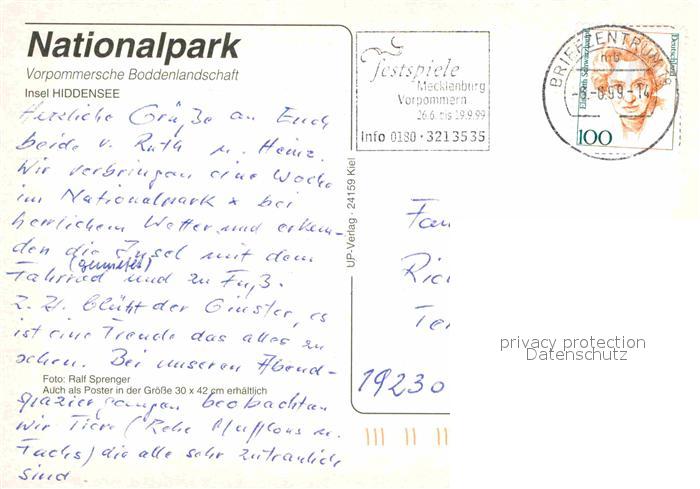 Nationalpark
Vorpommersche Boddenlandschaft
Insel HIDDENSEE
Herzliche Grüße an Euch
beide v. Ruth u. Heinz.
Wir verbringen eine Woche
im Nationalpark x bei
herrlichem Wetter und erkun-
den die Insel mit dem
(gemietet)
Fahrrad und zu Fuß.
Z. Zt. blüht der Ginster, es
ist eine Freude das alles zu
sehen. Bei unseren Abend-
Foto: Ralf Sprenger
Auch als Poster in der Größe 30 x 42 cm erhältlich
spaziergängen beobachten
wir Tiere (Rehe Mufflons u.
Fuchs) die alle sehr zutraulich
sind
UP-Verlag · 24159 Kiel
Festspiele
Mecklenburg
Vorpommern
26.6. bis 19.9.99
Info 0180 · 3213535
BRIEFZENTRUM 18
mb
-6.99-14
Deutschland
Elisabeth Schwarzhaupt
100
Fam
Ric
Te
19230
privacy protection
Datenschutz